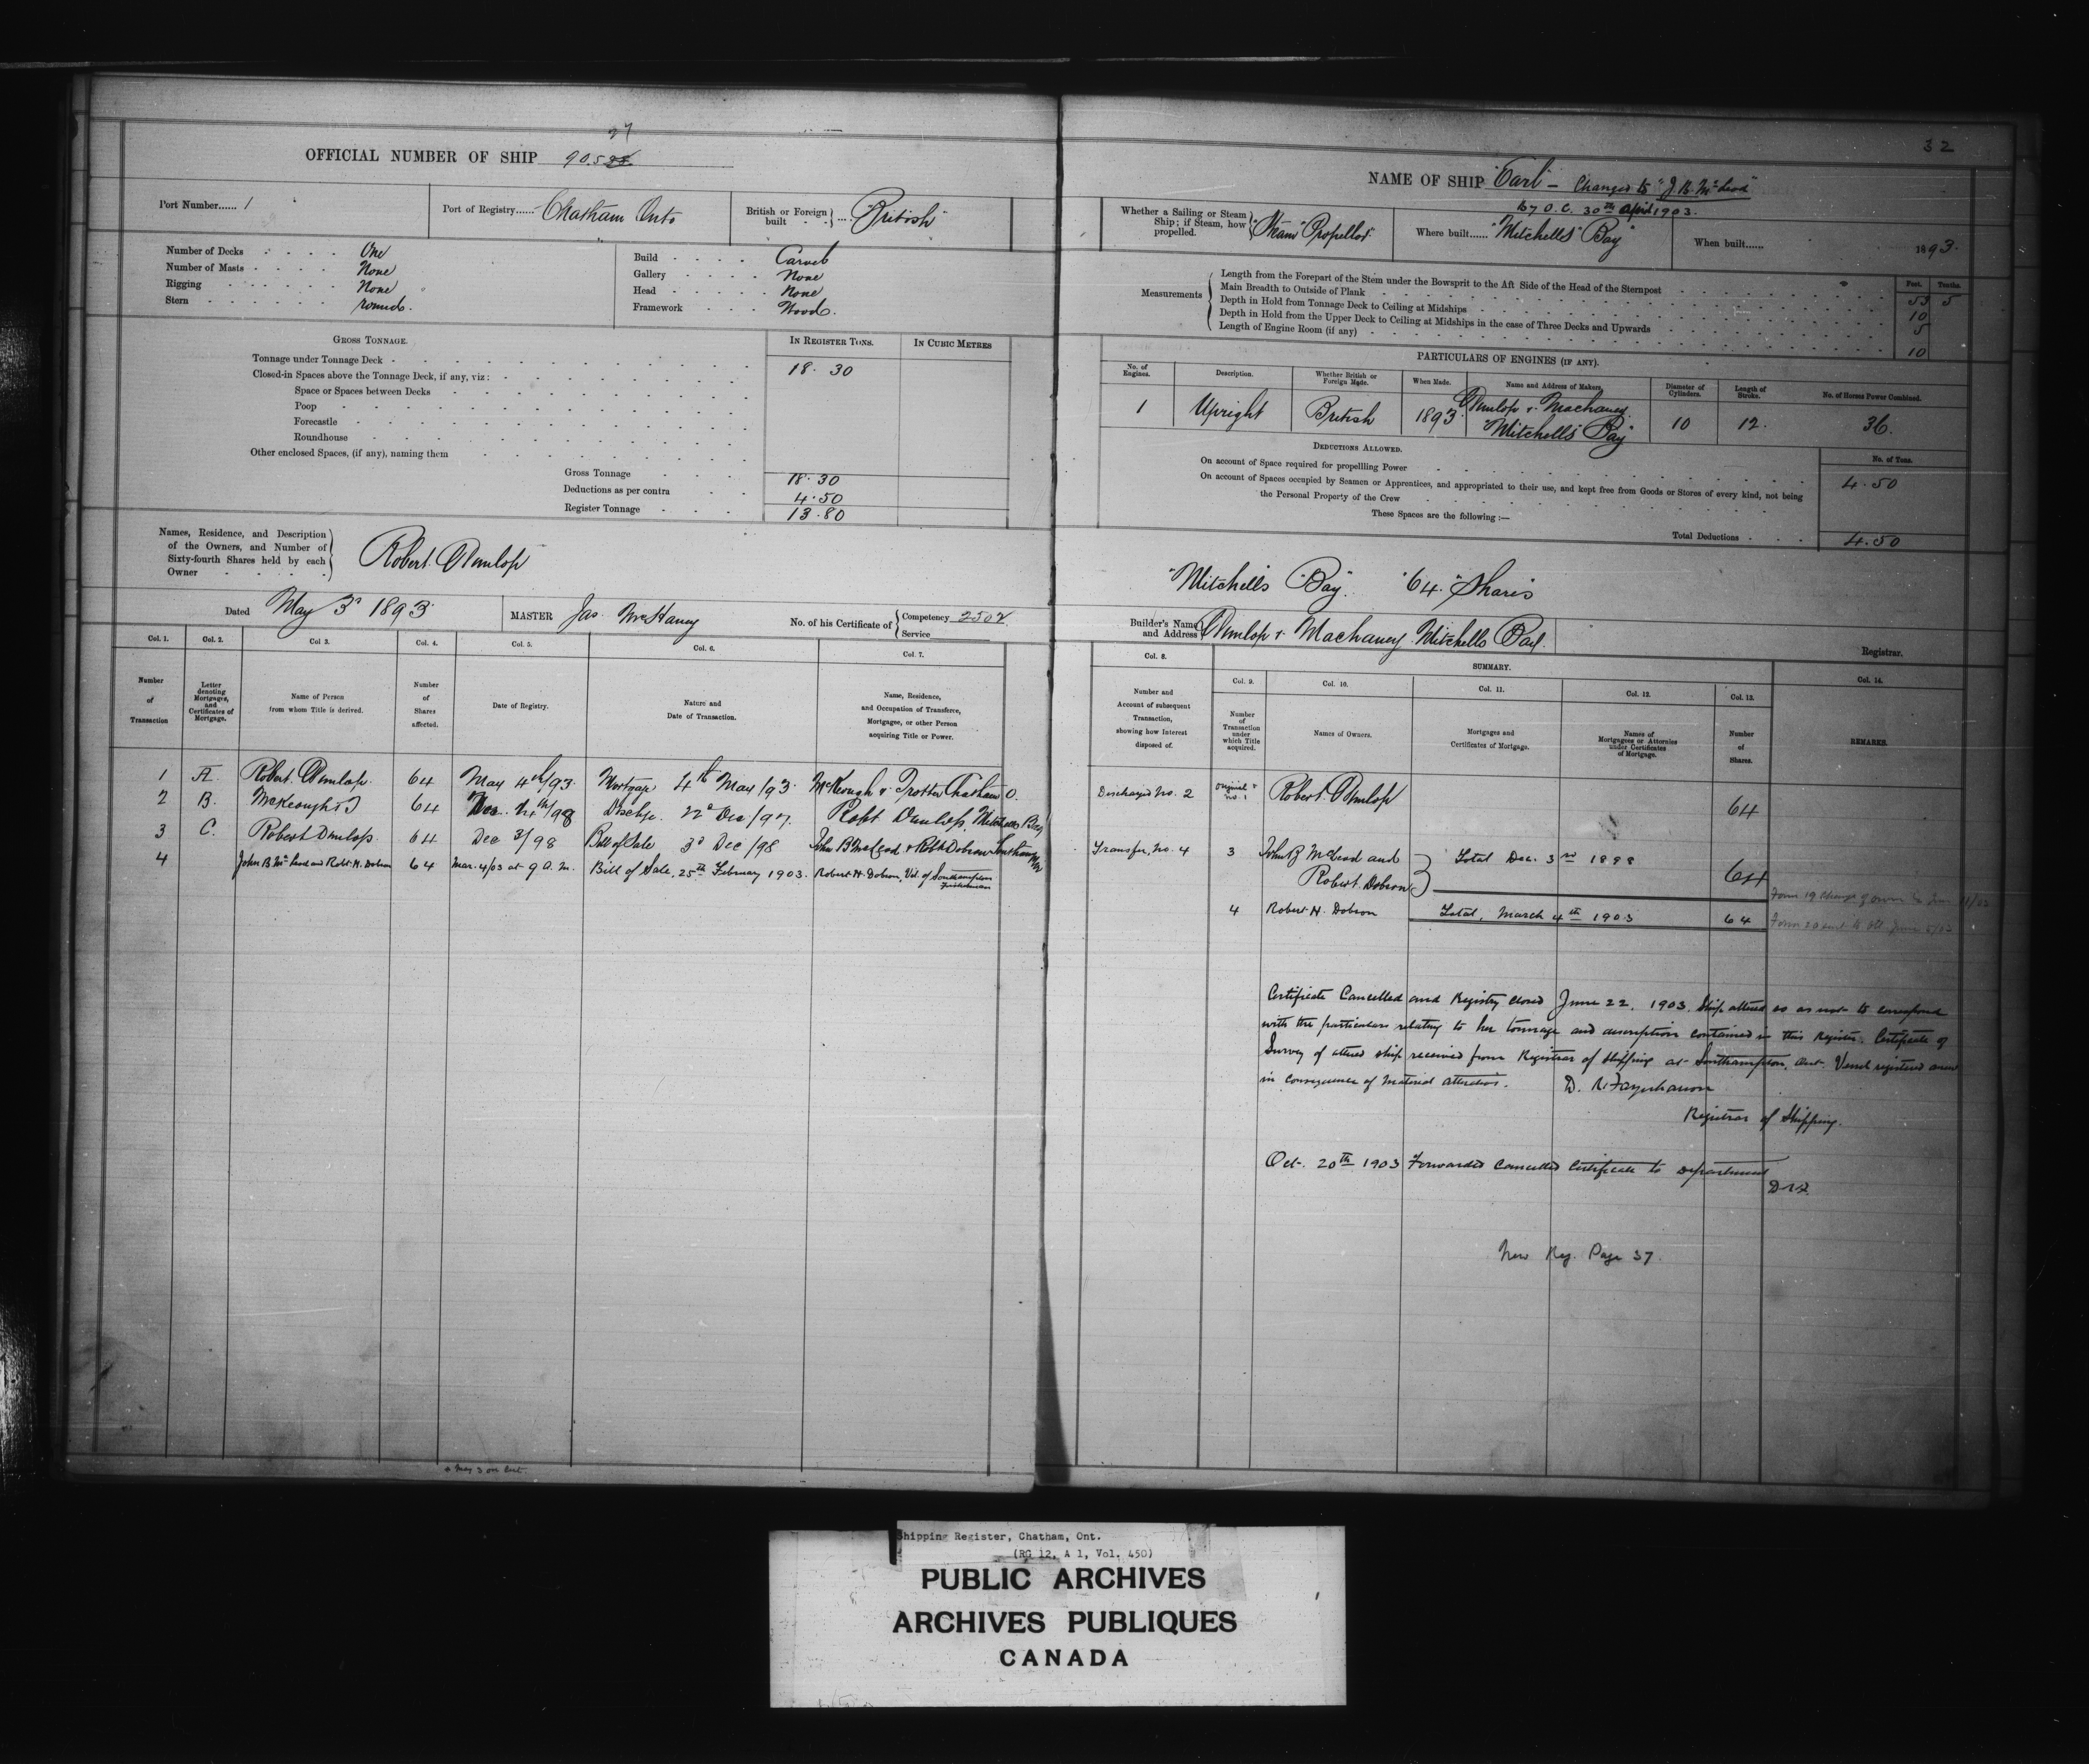 27
OFFICIAL NUMBER OF SHIP 905
Port Number...... 1
Port of Registry...... Chatham Onto
British or Foreign built .... "British"
Number of Decks One
Number of Masts None
Rigging None
Stern round.
Build Carvel
Gallery None
Head None
Framework Wood.
GROSS TONNAGE.
IN REGISTER TONS.
IN CUBIC METRES
Tonnage under Tonnage Deck 18.30
Closed-in Spaces above the Tonnage Deck, if any, viz:
Space or Spaces between Decks
Poop
Forecastle
Roundhouse
Other enclosed Spaces, (if any), naming them
Gross Tonnage 18.30
Deductions as per contra 4.50
Register Tonnage 13.80
Names, Residence, and Description
of the Owners, and Number of
Sixty-fourth Shares held by each
Owner
Robert Dunlop
Dated May 3d 1893
MASTER Jas
No. of his Certificate of Competency 2502
Service
Col. 1. Col. 2. Col 3. Col. 4. Col. 5. Col. 6. Col. 7.
Number of Transaction
Letter denoting Mortgages, and Certificates of Mortgage.
Name of Person from whom Title is derived.
Number of Shares affected.
Date of Registry.
Nature and Date of Transaction.
Name, Residence, and Occupation of Transferee, Mortgagee, or other Person acquiring Title or Power.
1 A. Robert Dunlop 64 May 4th/93 Mortgage 4th May/93 McKeough & Trotter Chatham O.
2 B. McKeough & T 64 Discge. 22d Dec/97 Robt Dunlop, Mitchells Bay
3 C. Robert Dunlop 64 Dec 3/98 Bill of Sale 3d Dec/98 John B McLeod & Robt Dobson Southampton
4 John B McLeod and Robt. H. Dobson 64 Mar. 4/03 at 9 A.M. Bill of Sale, 25th February 1903. Robert H. Dobson, Vil. of Southampton
Fisherman
32
NAME OF SHIP "Earl" - Changed to "J. B. McLeod"
by O.C. 30th April 1903.
Whether a Sailing or Steam Ship; if Steam, how propelled. "Steam" "Propellor"
Where built...... "Mitchells" Bay"
When built...... 1893.
Measurements
Feet. Tenths.
Length from the Forepart of the Stem under the Bowsprit to the Aft Side of the Head of the Sternpost 53 5
Main Breadth to Outside of Plank 10
Depth in Hold from Tonnage Deck to Ceiling at Midships 5
Depth in Hold from the Upper Deck to Ceiling at Midships in the case of Three Decks and Upwards
Length of Engine Room (if any) 10
PARTICULARS OF ENGINES (IF ANY).
No. of Engines. Description. Whether British or Foreign Made. When Made. Name and Address of Makers. Diameter of Cylinders. Length of Stroke. No. of Horses Power Combined.
1 Upright British 1893. Dunlop & Machaney 10 12. 36.
"Mitchells" Bay"
DEDUCTIONS ALLOWED.
No. of Tons.
On account of Space required for propellling Power 4.50
On account of Spaces occupied by Seamen or Apprentices, and appropriated to their use, and kept free from Goods or Stores of every kind, not being
the Personal Property of the Crew
These Spaces are the following :—
Total Deductions 4.50
"Mitchells "Bay". "64" Shares
Builder's Name and Address Dunlop & Machaney Mitchells Bay.
Registrar.
Col. 8. SUMMARY. Col. 14.
Col. 9. Col. 10. Col. 11. Col. 12. Col. 13.
Number and Account of subsequent Transaction, showing how Interest disposed of.
Number of Transaction under which Title acquired.
Names of Owners.
Mortgages and Certificates of Mortgage.
Names of Mortgagees or Attornies under Certificates of Mortgage.
Number of Shares.
REMARKS.
Discharged No. 2 Original & No. 1 Robert Dunlop 64
Transfer, No. 4 3 John B McLeod and Total Dec. 3rd 1898
Robert Dobson 64
4 Robert H. Dobson Total, March 4th 1903 64
Certificate Cancelled and Registry closed June 22, 1903. Ship altered so as not to correspond
with the particulars relating to her tonnage and description contained in this Register. Certificate of
Survey of altered ship received from Registrar of Shipping at Southampton, Ont. Vessel registered anew
in consequence of Material alterations. D. R. Farquharson
Registrar of Shipping.
Oct. 20th 1903 Forwarded Cancelled Certificate to Department
D.R.F.
New Reg. Page 37.
Shipping Register, Chatham, Ont.
(RG 12, A 1, Vol. 450)
PUBLIC ARCHIVES
ARCHIVES PUBLIQUES
CANADA